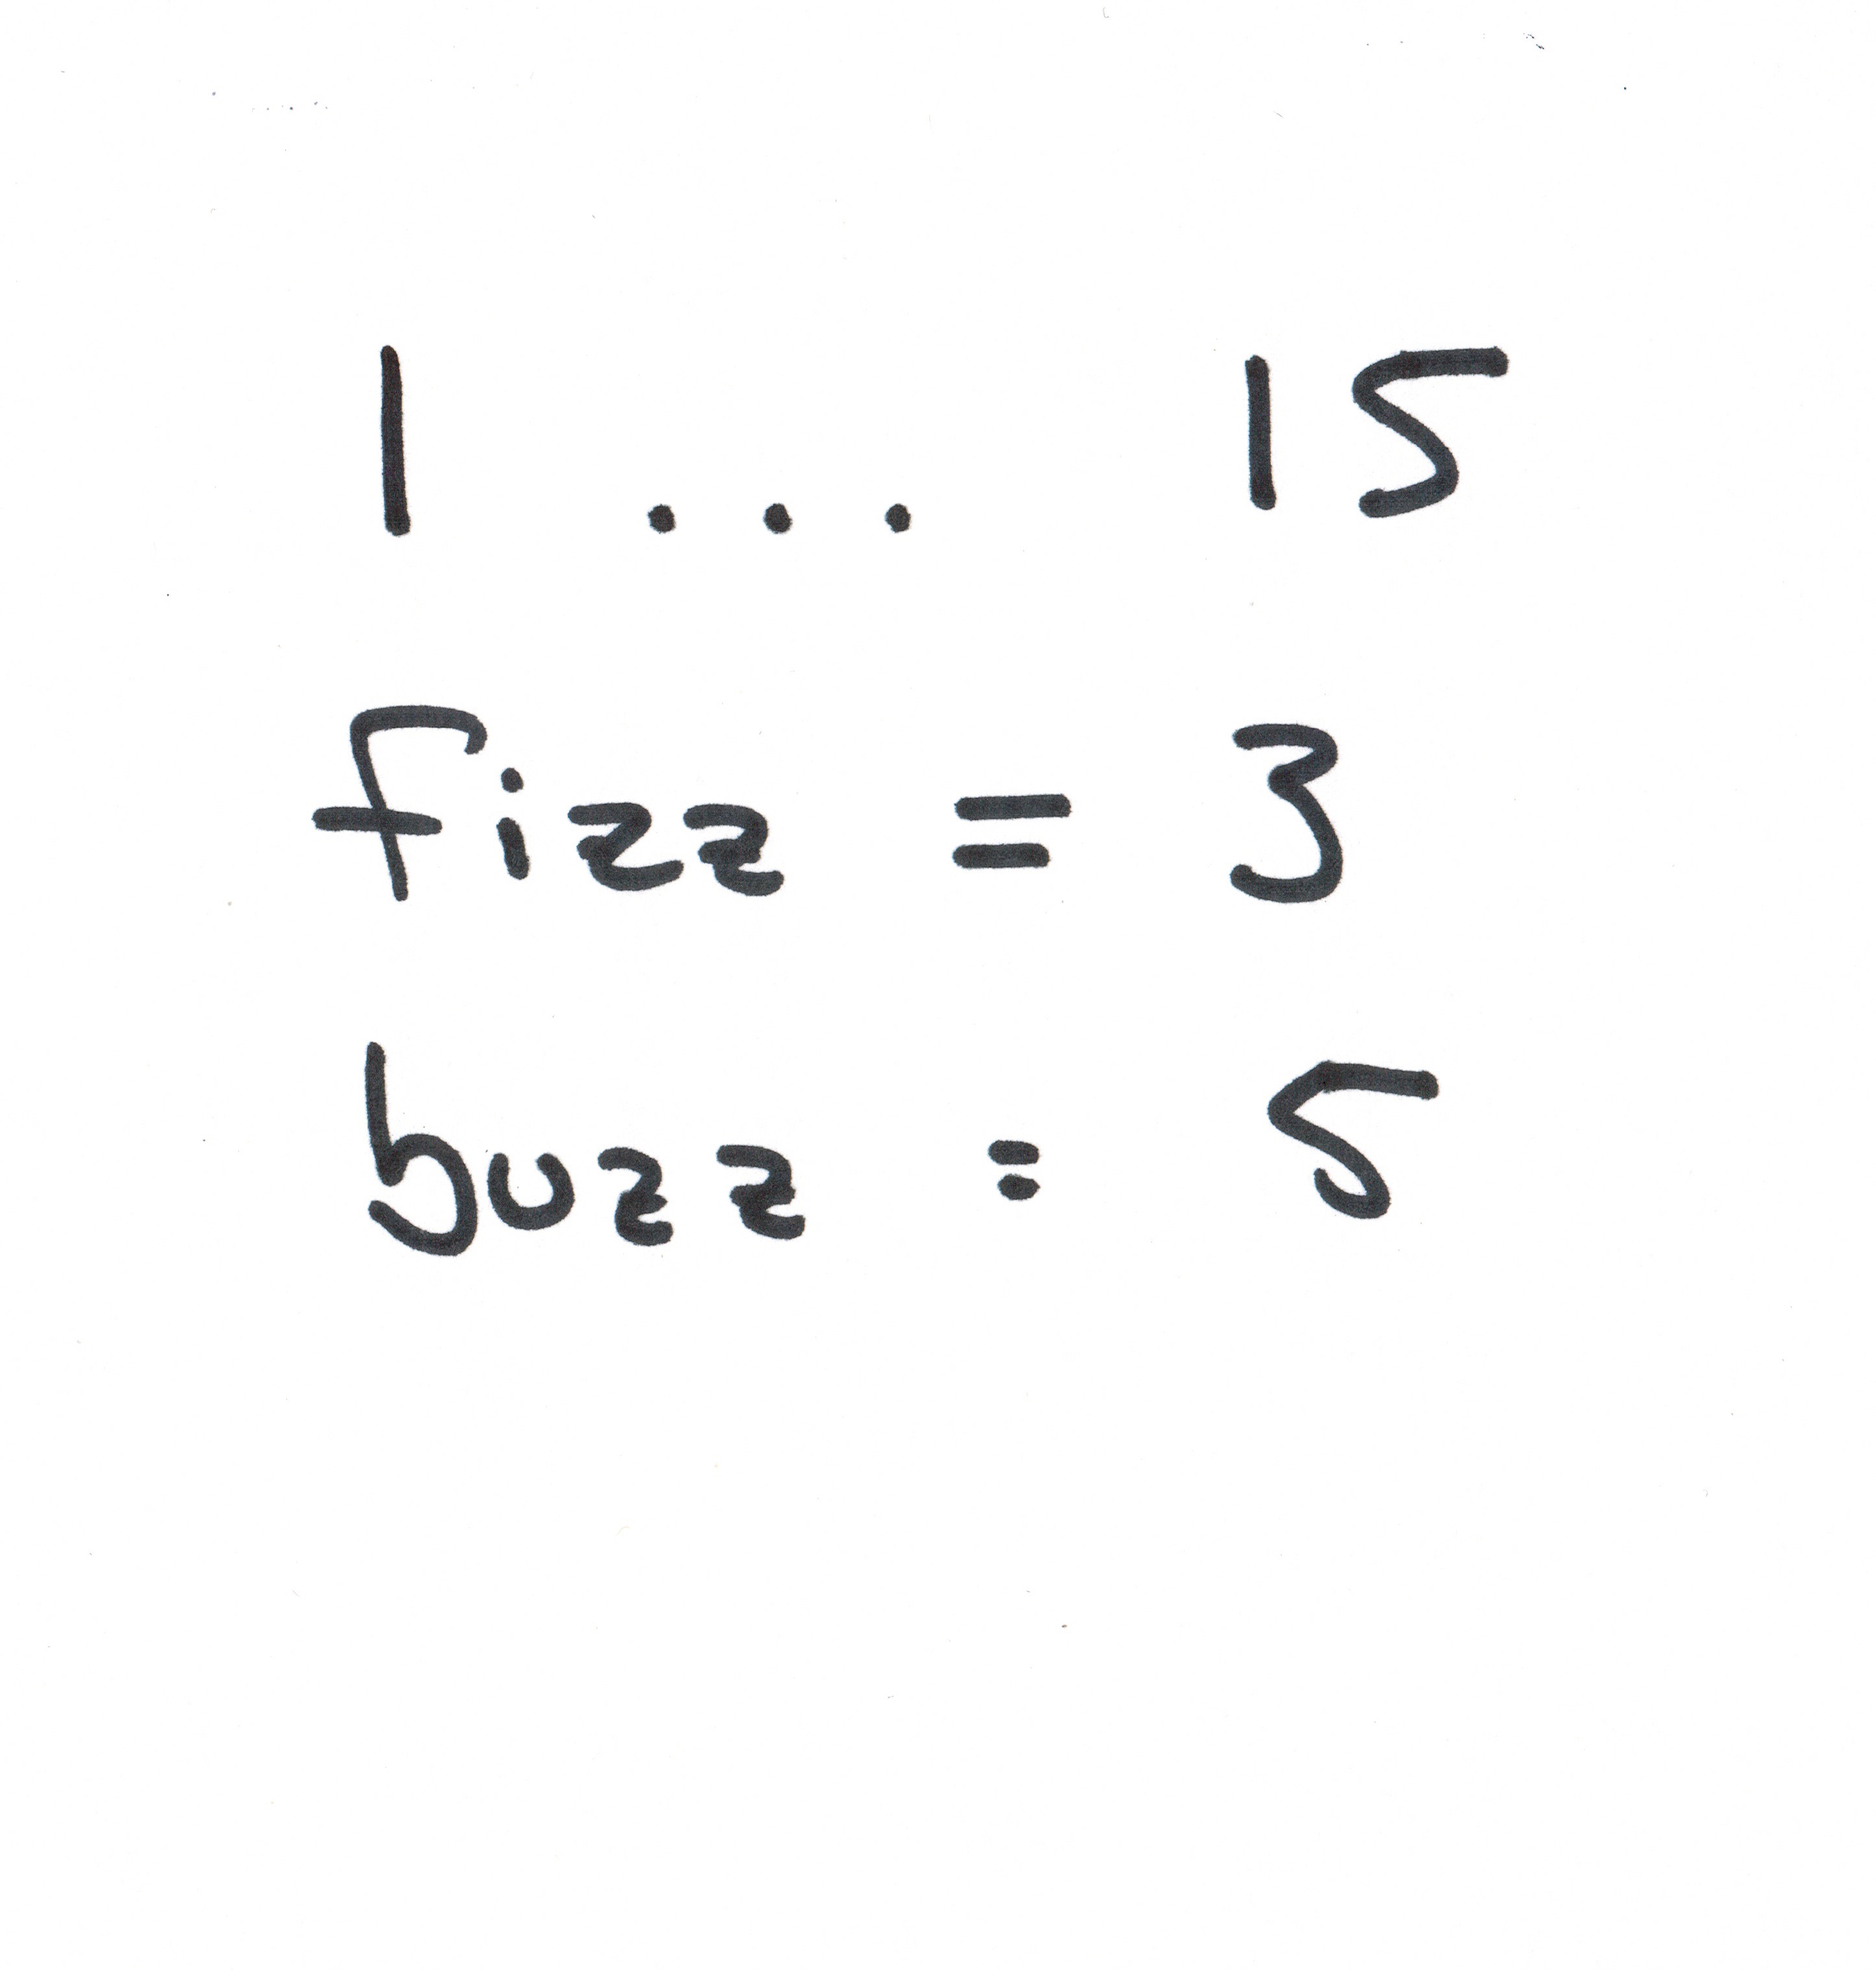 1 ... 15
fizz = 3
buzz = 5